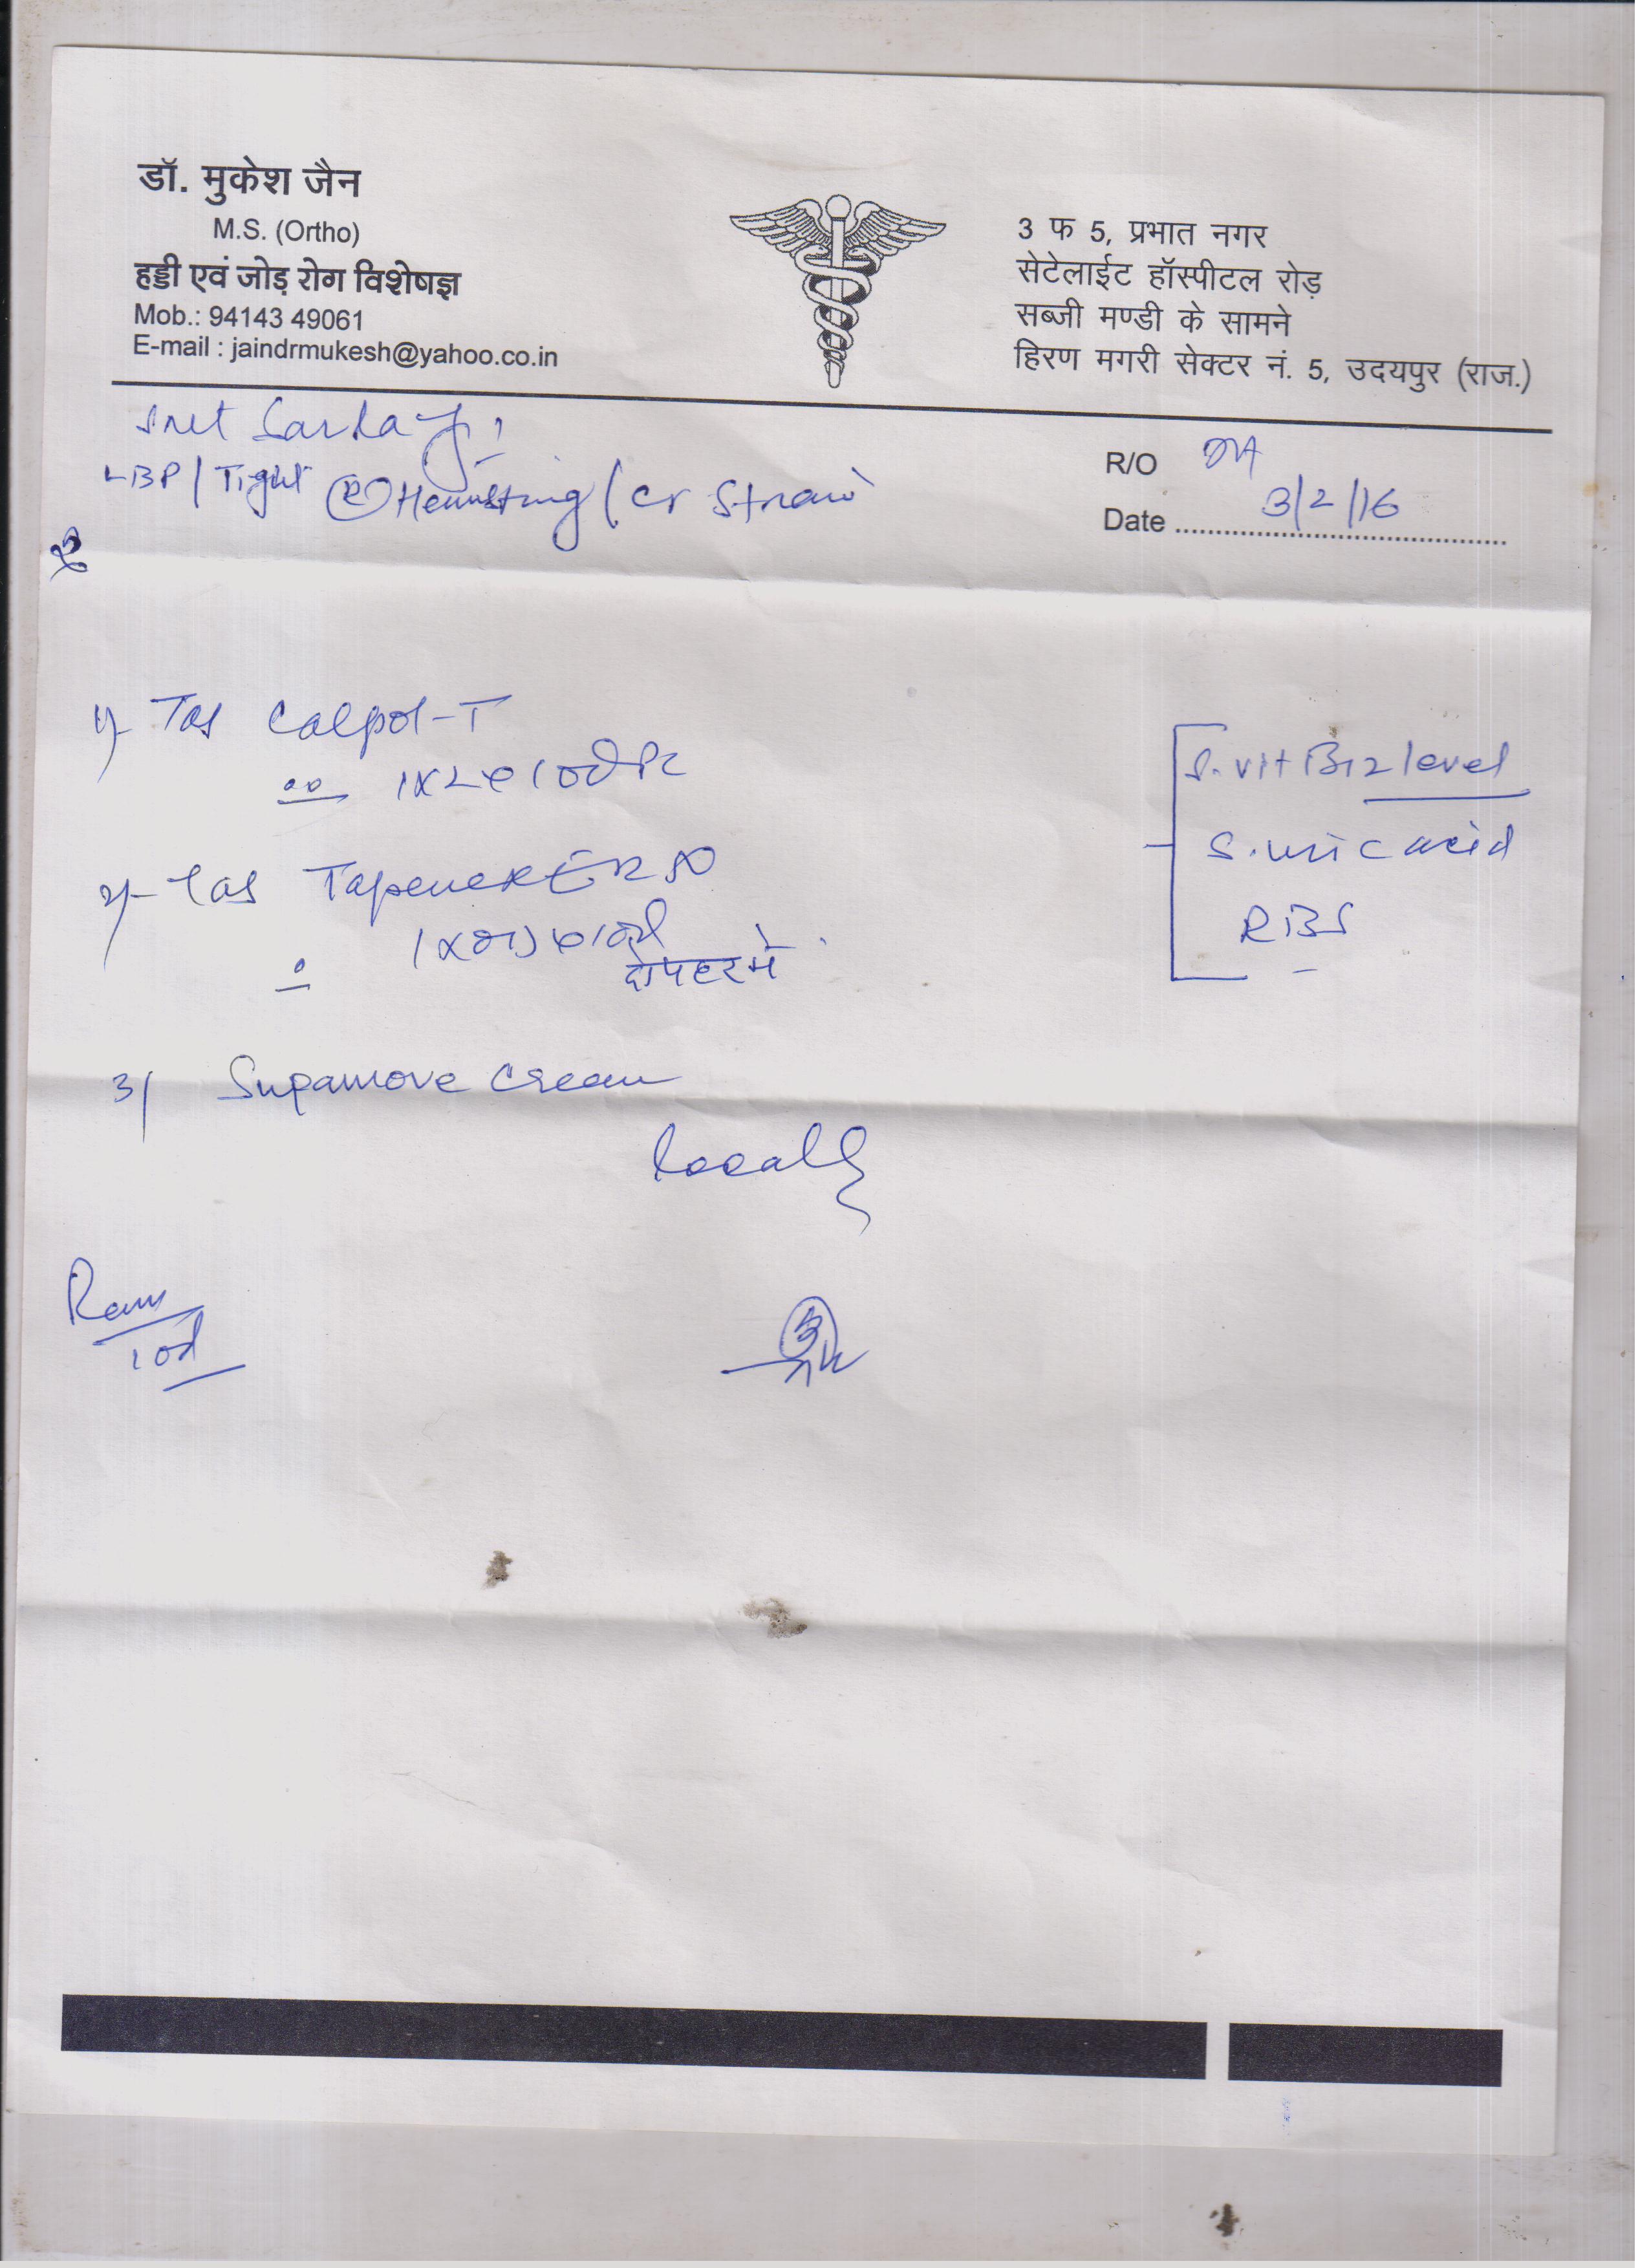 डॉ. मुकेश जैन
M.S. (Ortho)
हड्डी एवं जोड़ रोग विशेषज्ञ
Mob.: 94143 49061
E-mail : jaindrmukesh@yahoo.co.in
3 फ 5, प्रभात नगर
सेटेलाईट हॉस्पीटल रोड़
सब्जी मण्डी के सामने
हिरण मगरी सेक्टर नं. 5, उदयपुर (राज.)
R/O
Date 3/2/16
LBP / Tight (R) Hemstring / cr Strain
1) Tab Calpol-T
1x2
2) Tab ER 50
1x
दोपहर में
3) Supamove Cream
locally
S. vit B12 level
S. uric acid
RBS
10d